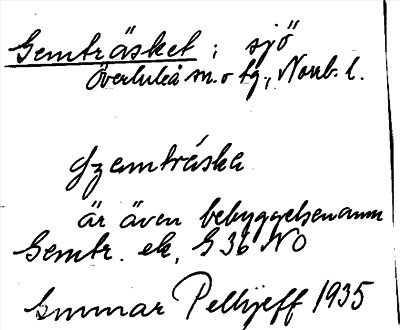 Gemträsket; sjö
Överluleå sn. o tg., Norrb. l.
är även bebyggelsenamn
Gemtr. ek. G 36 NO
Gunnar Pellijeff 1935